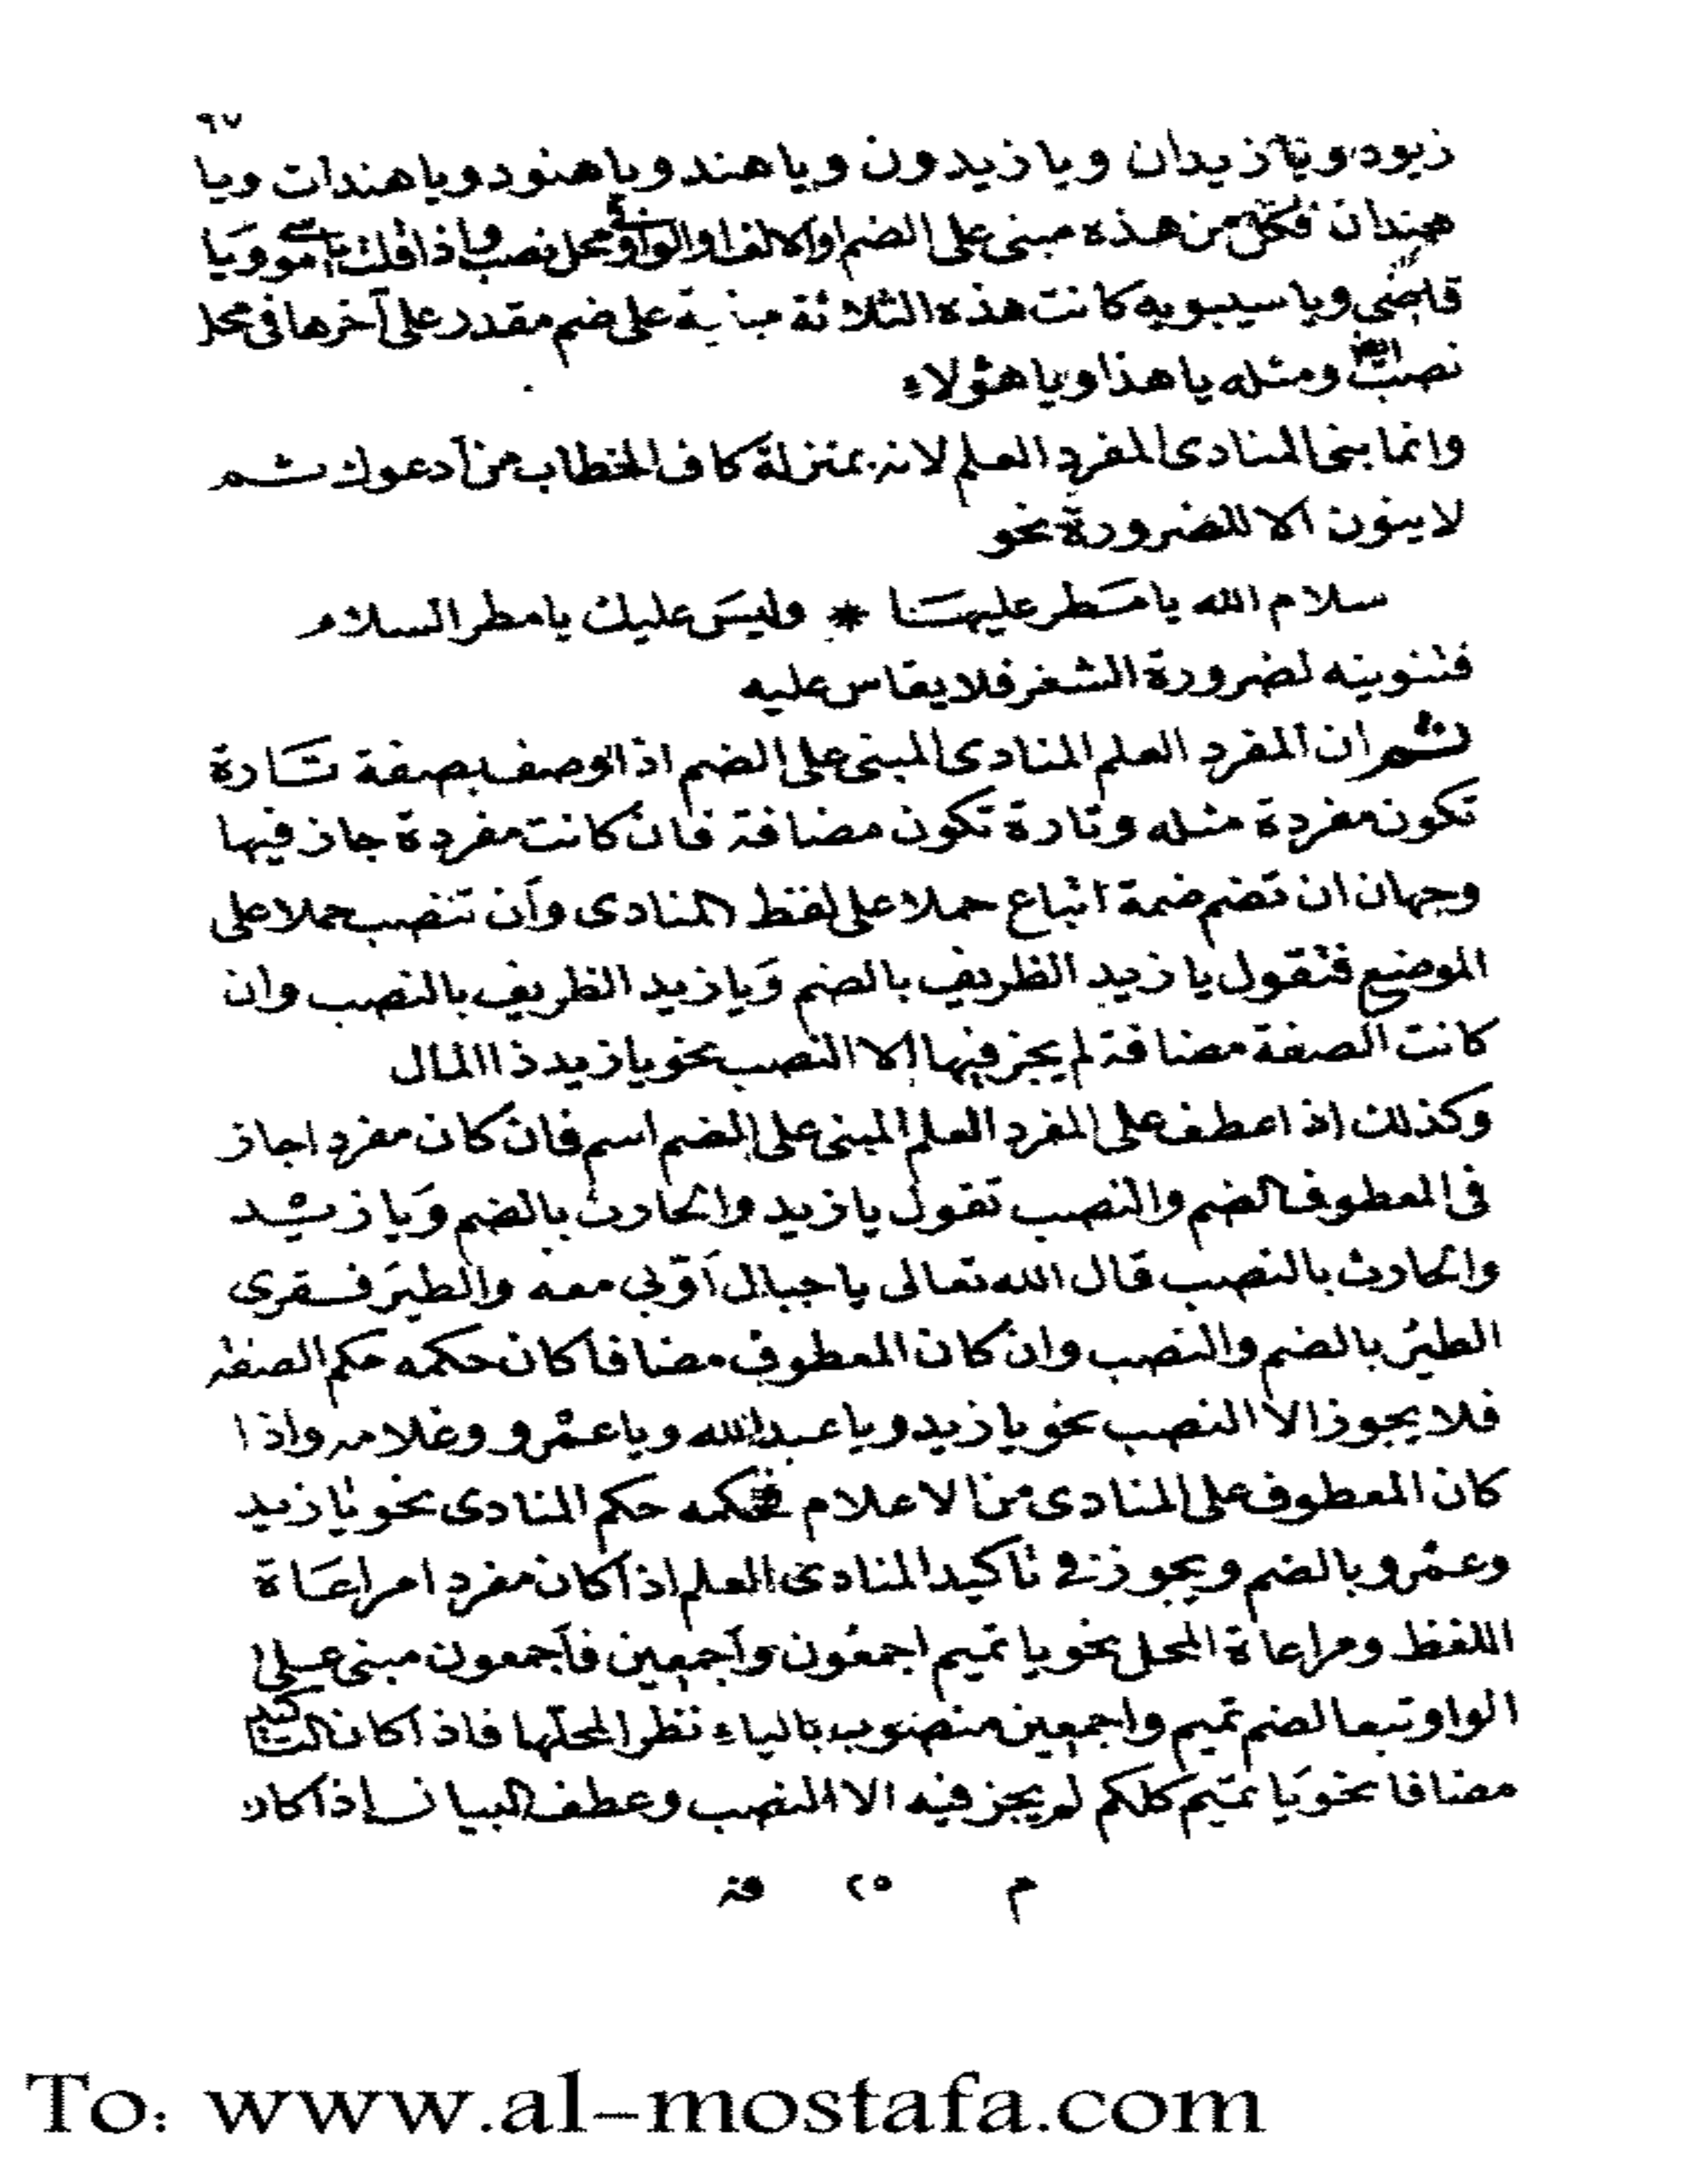 ٩٧
زيود ويا زيدان ويا زيدون ويا هند ويا هنود ويا هندات ويا
هندان فكل من هذه مبنى على الضم او الالف او الواو فى محل نصب واذا قلت يا موسى ويا
قاضى ويا سيبويه كانت هذه الثلاثة مبنية على ضم مقدر على آخرها فى محل
نصب ايضا ومثله يا هذا ويا هؤلاء
وانما بنى المنادى المفرد العلم لانه بمنزلة كاف الخطاب من أدعوك ثم
لا ينون الا للضرورة نحو
سلام الله يا مطر عليها * وليس عليك يا مطر السلام
فتنوينه لضرورة الشعر فلا يقاس عليه
ثم ان المفرد العلم المنادى المبنى على الضم اذا وصف بصفة تارة
تكون مفردة مثله وتارة تكون مضافة فان كانت مفردة جاز فيها
وجهان ان تضم ضمة اتباع حملا على لفظ المنادى وأن تنصب حملا على
الموضع فتقول يا زيد الظريف بالضم وَيا زيد الظريف بالنصب وان
كانت الصفة مضافة لم يجز فيها الا النصب نحو يا زيد ذا المال
وكذلك اذا عطف على المفرد العلم المبنى على الضم اسم فان كان مفردا جاز
فى المعطوف الضم والنصب تقول يا زيد والحارث بالضم وَيا زيد
والحارث بالنصب قال الله تعالى يا جبال أوّبى معه والطيرَ فقرى
الطيرُ بالضم والنصب وان كان المعطوف مضافا كان حكمه حكم الصفة
فلا يجوز الا النصب نحو يا زيد ويا عبد الله ويا عمرو وغلامه واذا
كان المعطوف على المنادى من الاعلام فحكمه حكم المنادى نحو يا زيد
وعمرو بالضم ويجوز فى تاكيد المنادى العلم اذا كان مفردا مراعاة
اللفظ ومراعاة المحل نحو يا تميم اجمعون وأجمعين فأجمعون مبنى على
الواو تبعا لضم تميم واجمعين منصوب بالياء نظرا لمحلها فاذا كان التاكيد
مضافا نحو يَا تميم كلكم لم يجز فيه الا النصب وعطف البيان اذا كان
م ٢٥ فة
To: www.al-mostafa.com